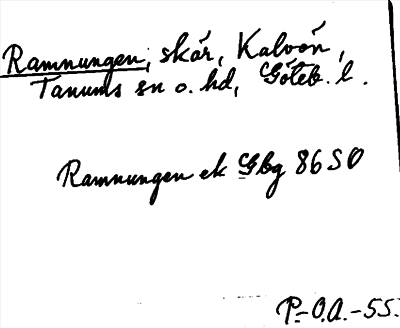 Ramnungen, skär, Kalvön,
Tanums sn o. hd, Göteb. l.
Ramnungen ek Gbg 86 SO
P.-O.A.-55.